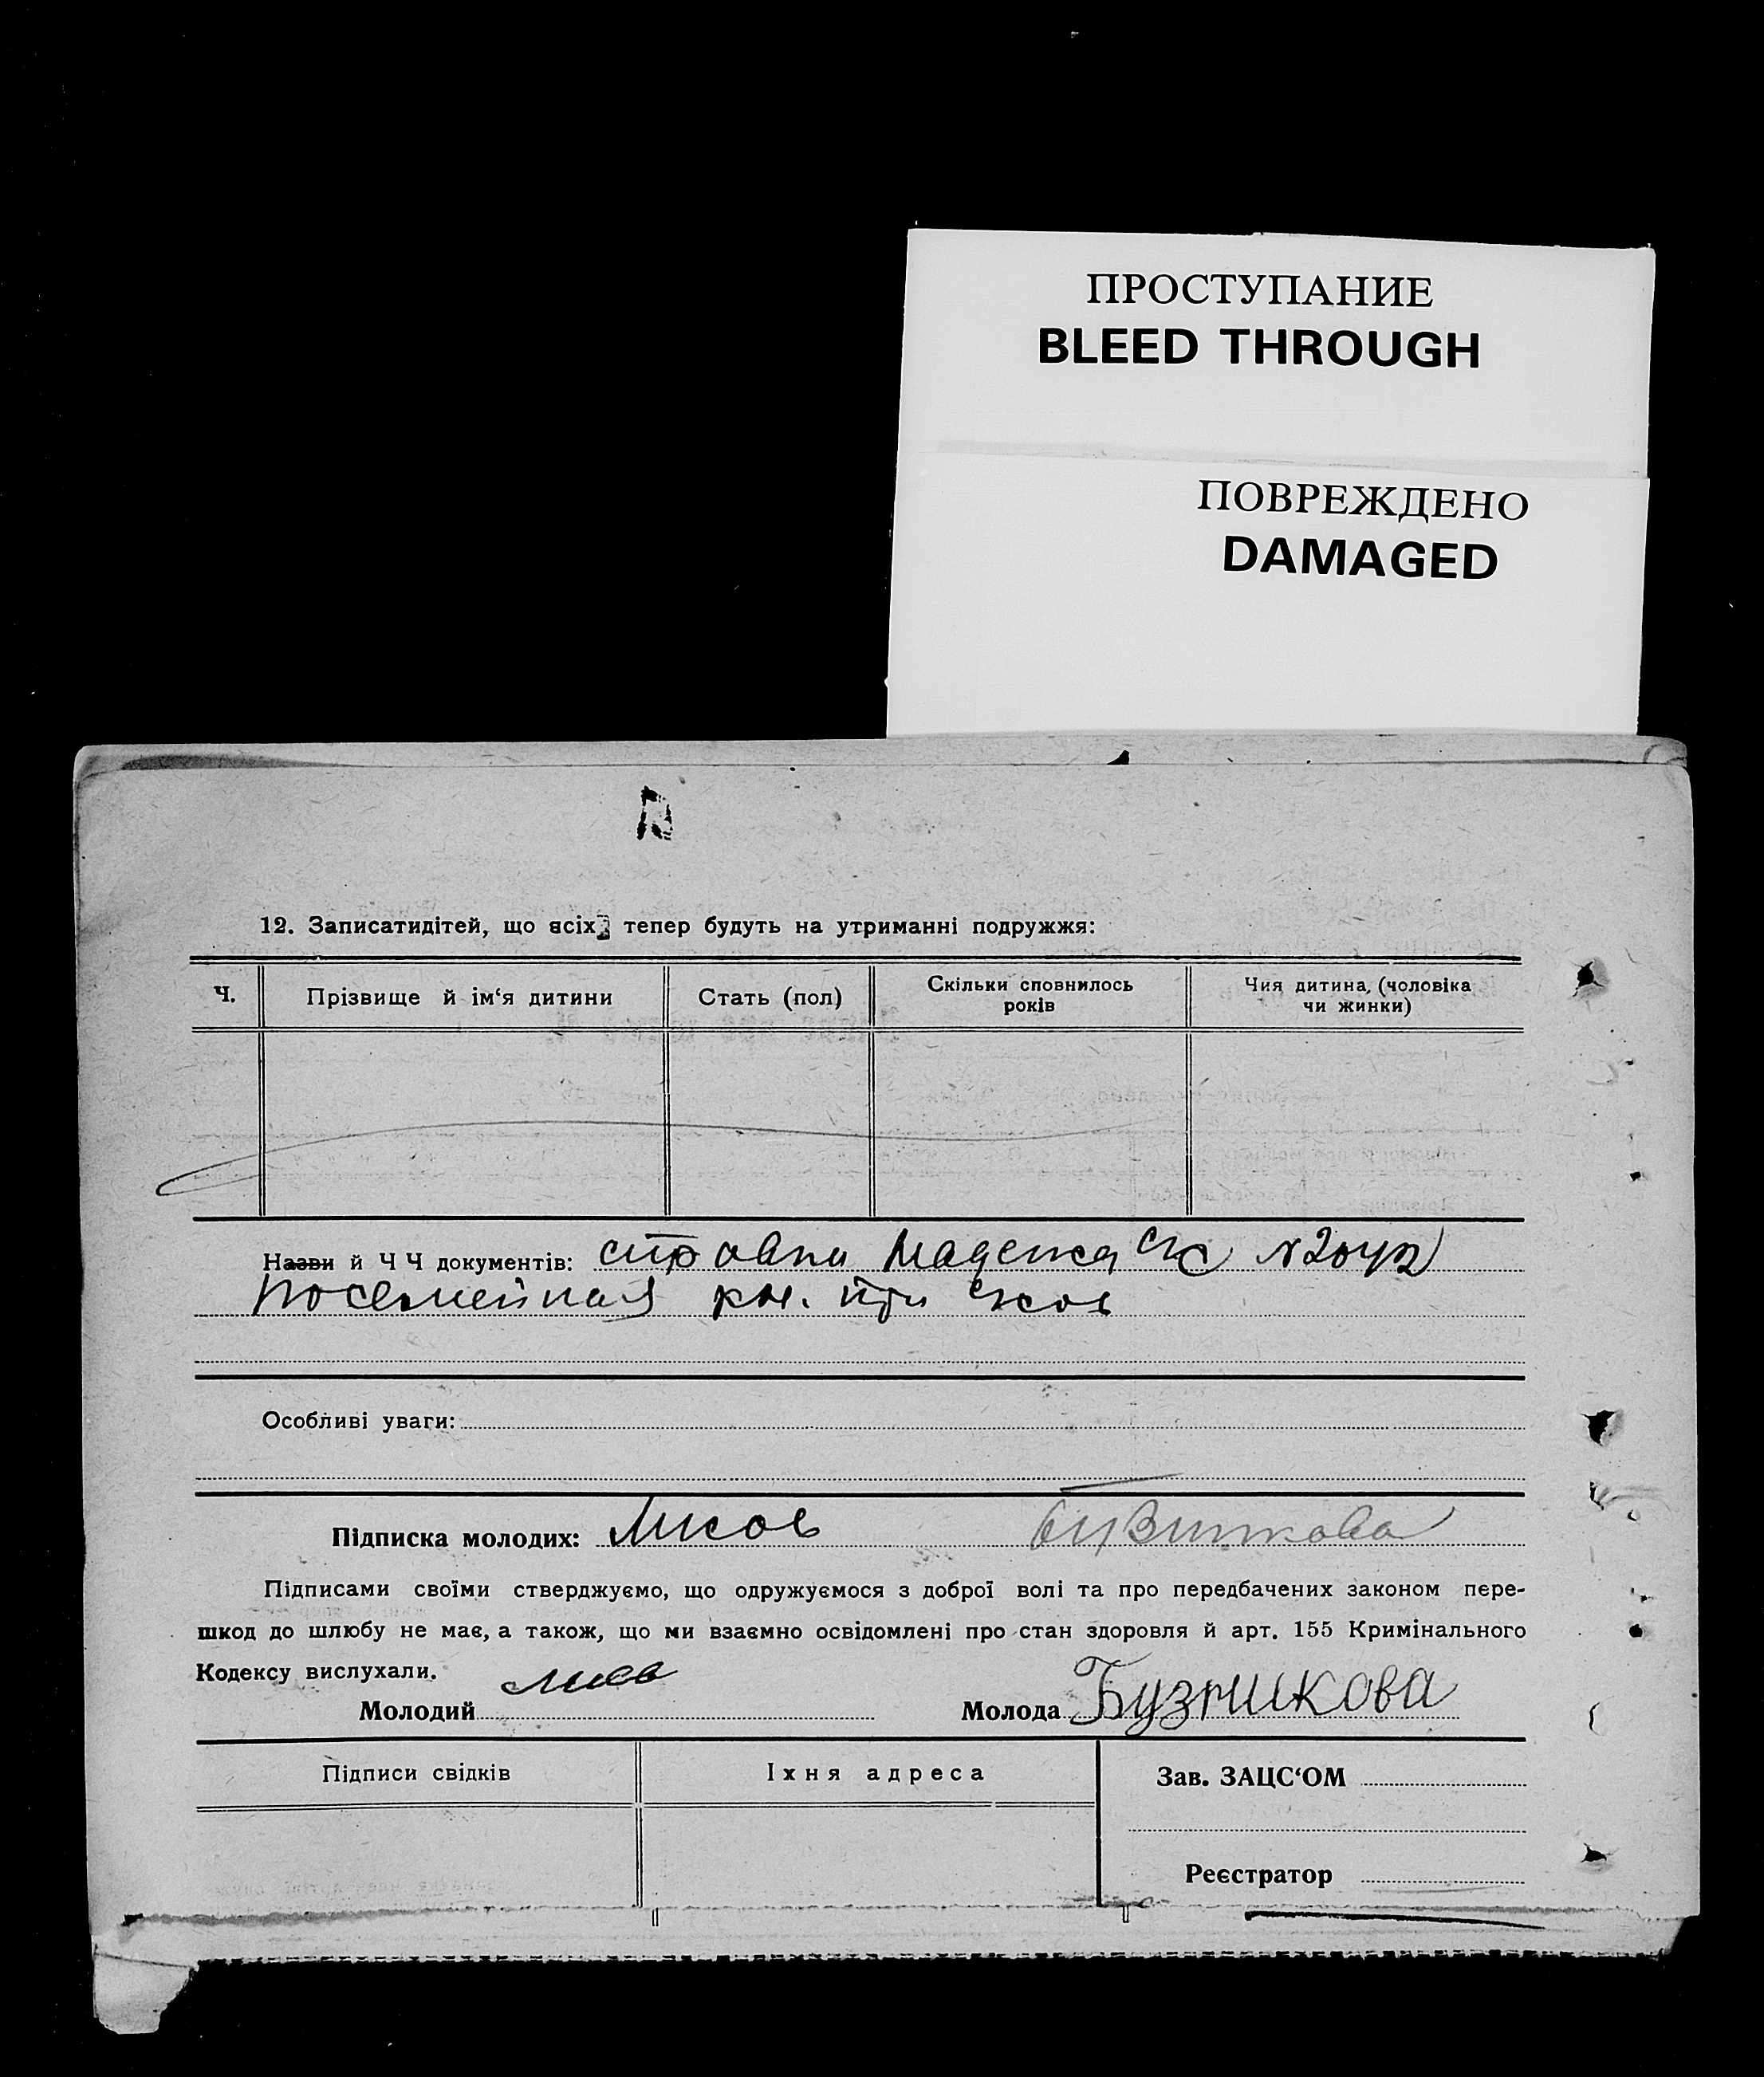 ПРОСТУПАНИЕ
BLEED THROUGH
ПОВРЕЖДЕНО
DAMAGED
12. Записатидітей, що всіх тепер будуть на утриманні подружжя:
Ч.
Прізвище й ім‘я дитини
Стать (пол)
Скільки сповнилось
років
Чия дитина, (чоловіка
чи жинки)
Назви й Ч Ч документів: справки СК №
Посемейная кн. при
Особливі уваги:
Підписка молодих: Лисов
Підписами своїми стверджуємо, що одружуємося з доброї волі та про передбачених законом пере-
шкод до шлюбу не має, а також, що ми взаємно освідомлені про стан здоровля й арт. 155 Кримінального
Кодексу вислухали.
Молодий
Молода Бузникова
Підписи свідків
Їхня адреса
Зав. ЗАЦС‘ОМ
Реєстратор